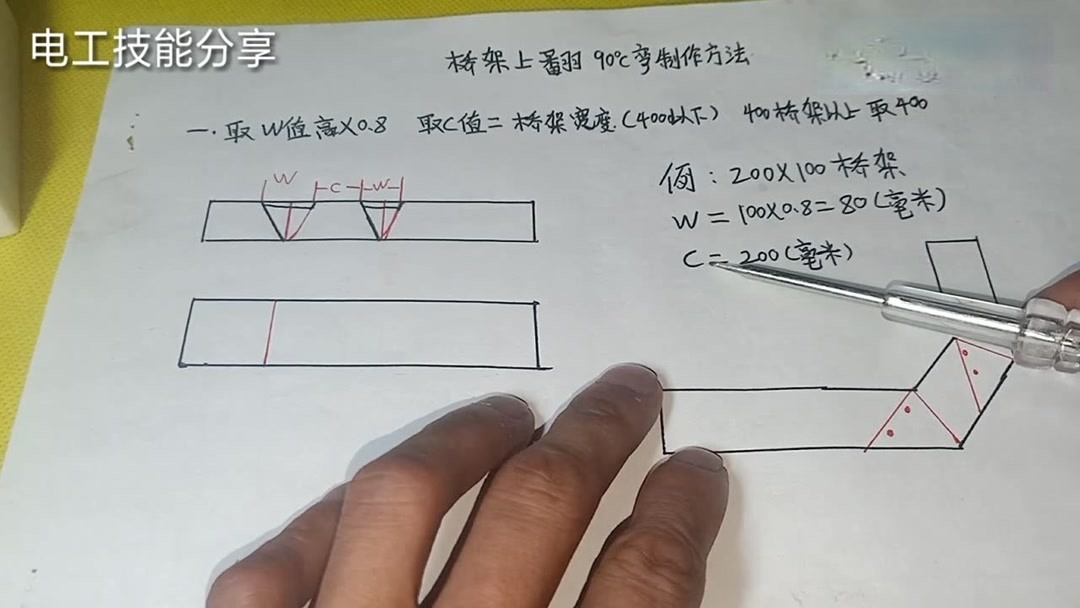 电工技能分享
桥架上翻90℃弯制作方法
一.取W值高X0.8 取C值=桥架宽度(400以下) 400桥架以上取400
例:200X100桥架
W=100X0.8=80(毫米)
C=200(毫米)
W C W